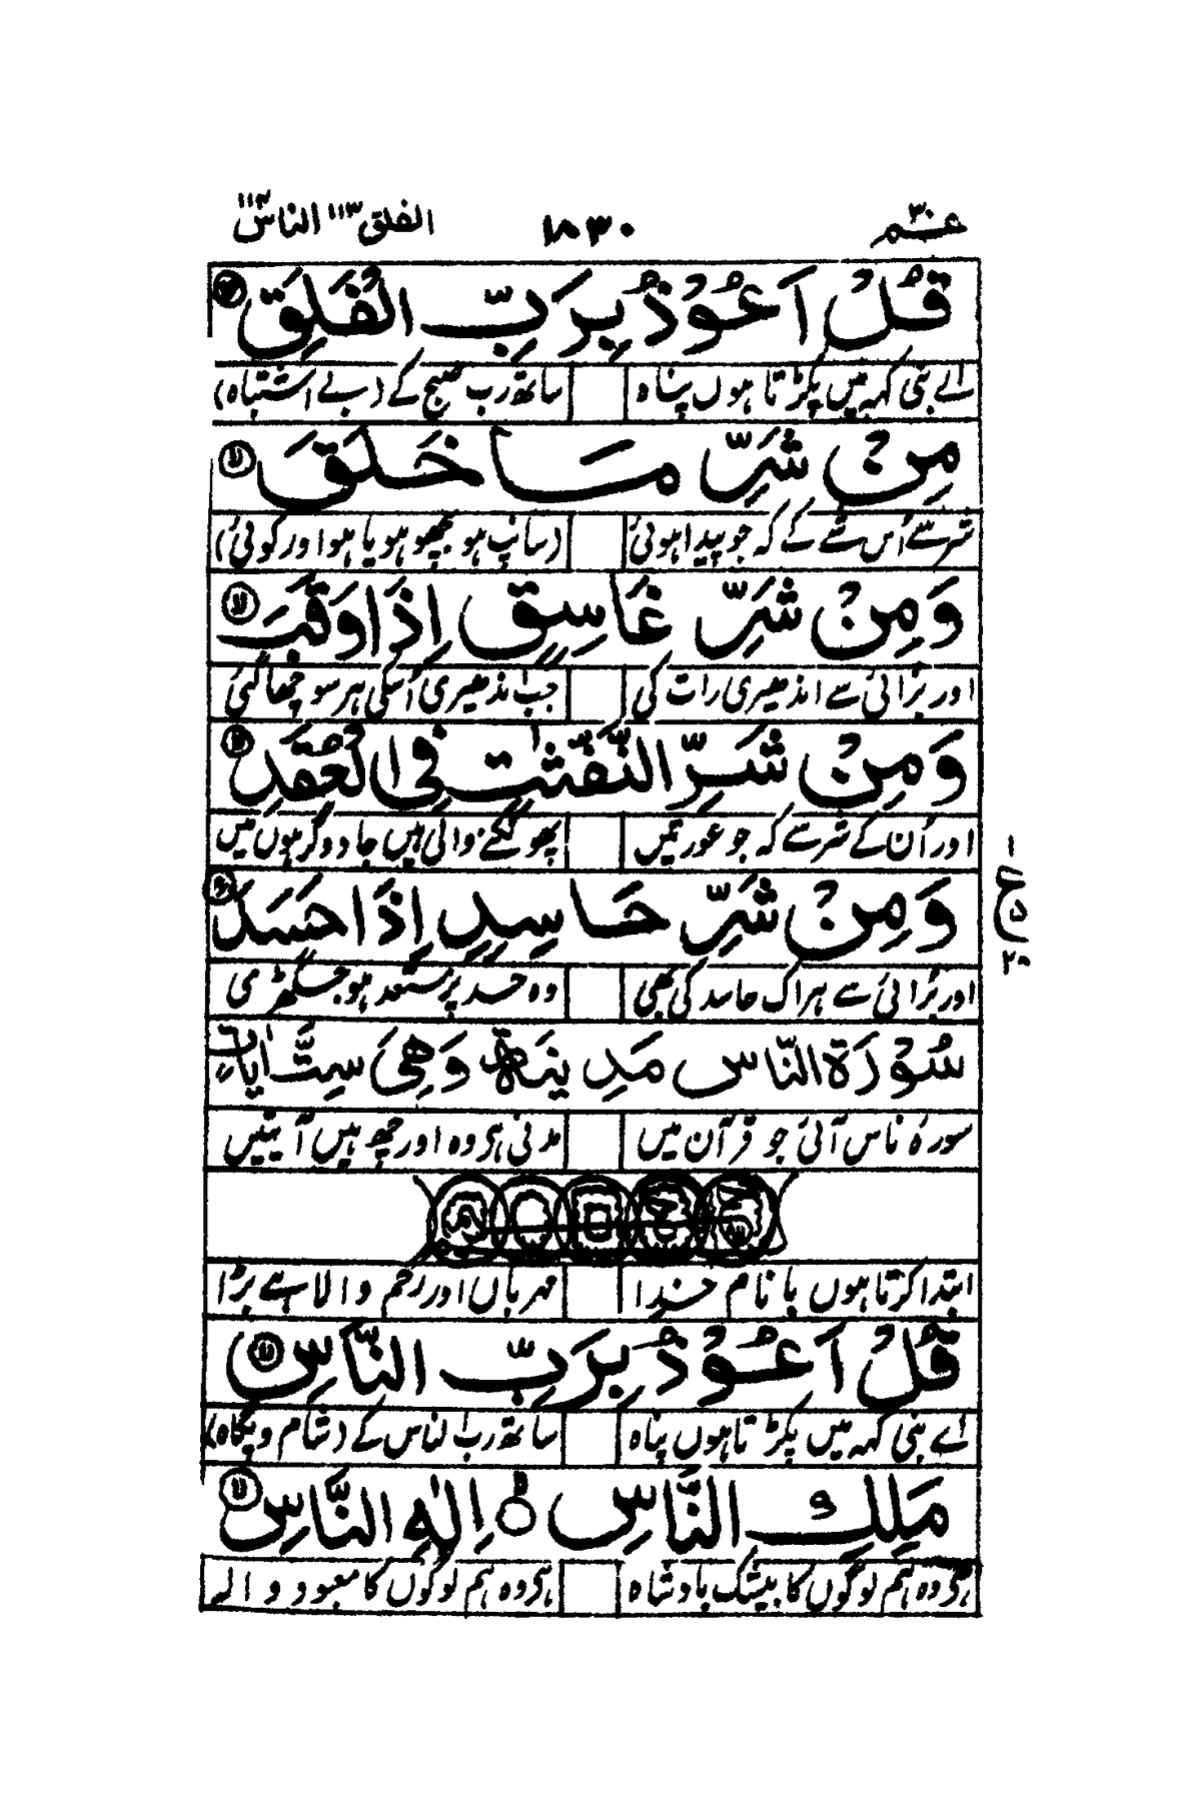 عم ۳۰ ۱۸۳۰ الفلق ۱۱۳ الناس ۱۱۴
قُلْ اَعُوْذُ بِرَبِّ الْفَلَقِ
اے نبی کہہ میں پکڑتا ہوں پناہ ساتھ رب صبح کے (بے اشتباہ)
مِنْ شَرِّ مَا خَلَقَ ۙ
شر سے اُس شے کے کہ جو پیدا ہوئی (سانپ ہو بچھو ہو یا ہو اور کوئی)
وَمِنْ شَرِّ غَاسِقٍ اِذَا وَقَبَ ۙ
اور بُرائی سے اندھیری رات کی جب اندھیری اُسکی ہر سو چھا گئی
وَمِنْ شَرِّ النَّفّٰثٰتِ فِی الْعُقَدِ ۙ
اور اُن کے شر سے کہ جو عورتیں پھونکنے والی ہیں جادو گرہوں میں
وَمِنْ شَرِّ حَاسِدٍ اِذَا حَسَدَ
اور بُرائی سے ہر اک حاسد کی بھی وہ حسد پر مستعد ہو جس گھڑی
سُوْرَةُ النَّاسِ مَدِيْنَةٌ وَهِیَ سِتُّ اٰيَاتٍ
سورۂ ناس آئی جو قرآن میں مدنی ہی وہ اور چھ ہیں آیتیں
ابتدا کرتا ہوں با نام خدا مہرباں اور رحم والا ہے بڑا
قُلْ اَعُوْذُ بِرَبِّ النَّاسِ ۙ
اے نبی کہہ میں پکڑتا ہوں پناہ ساتھ رب الناس کے (شام و پگاہ)
مَلِكِ النَّاسِ ۙ اِلٰهِ النَّاسِ ۙ
ہی وہ ہم لوگوں کا بیشک بادشاہ ہی وہ ہم لوگوں کا معبود و الہ